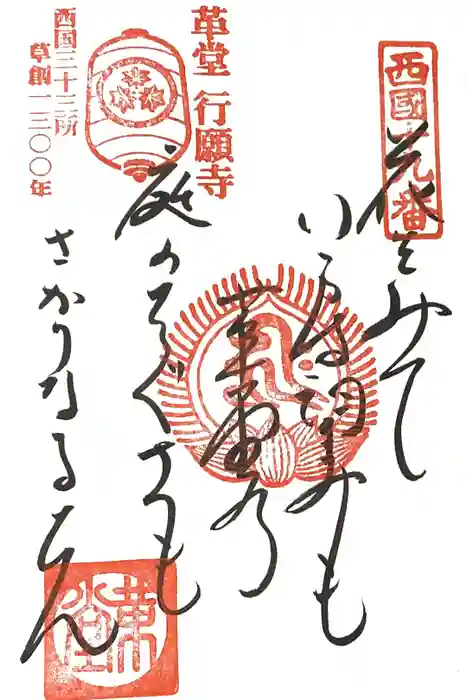 西國十九番
花をみて
いま者望みも
革堂乃
革堂 行願寺
庭の千ぐさも
西国三十三所
草創一三〇〇年
さかりなるらん
革堂